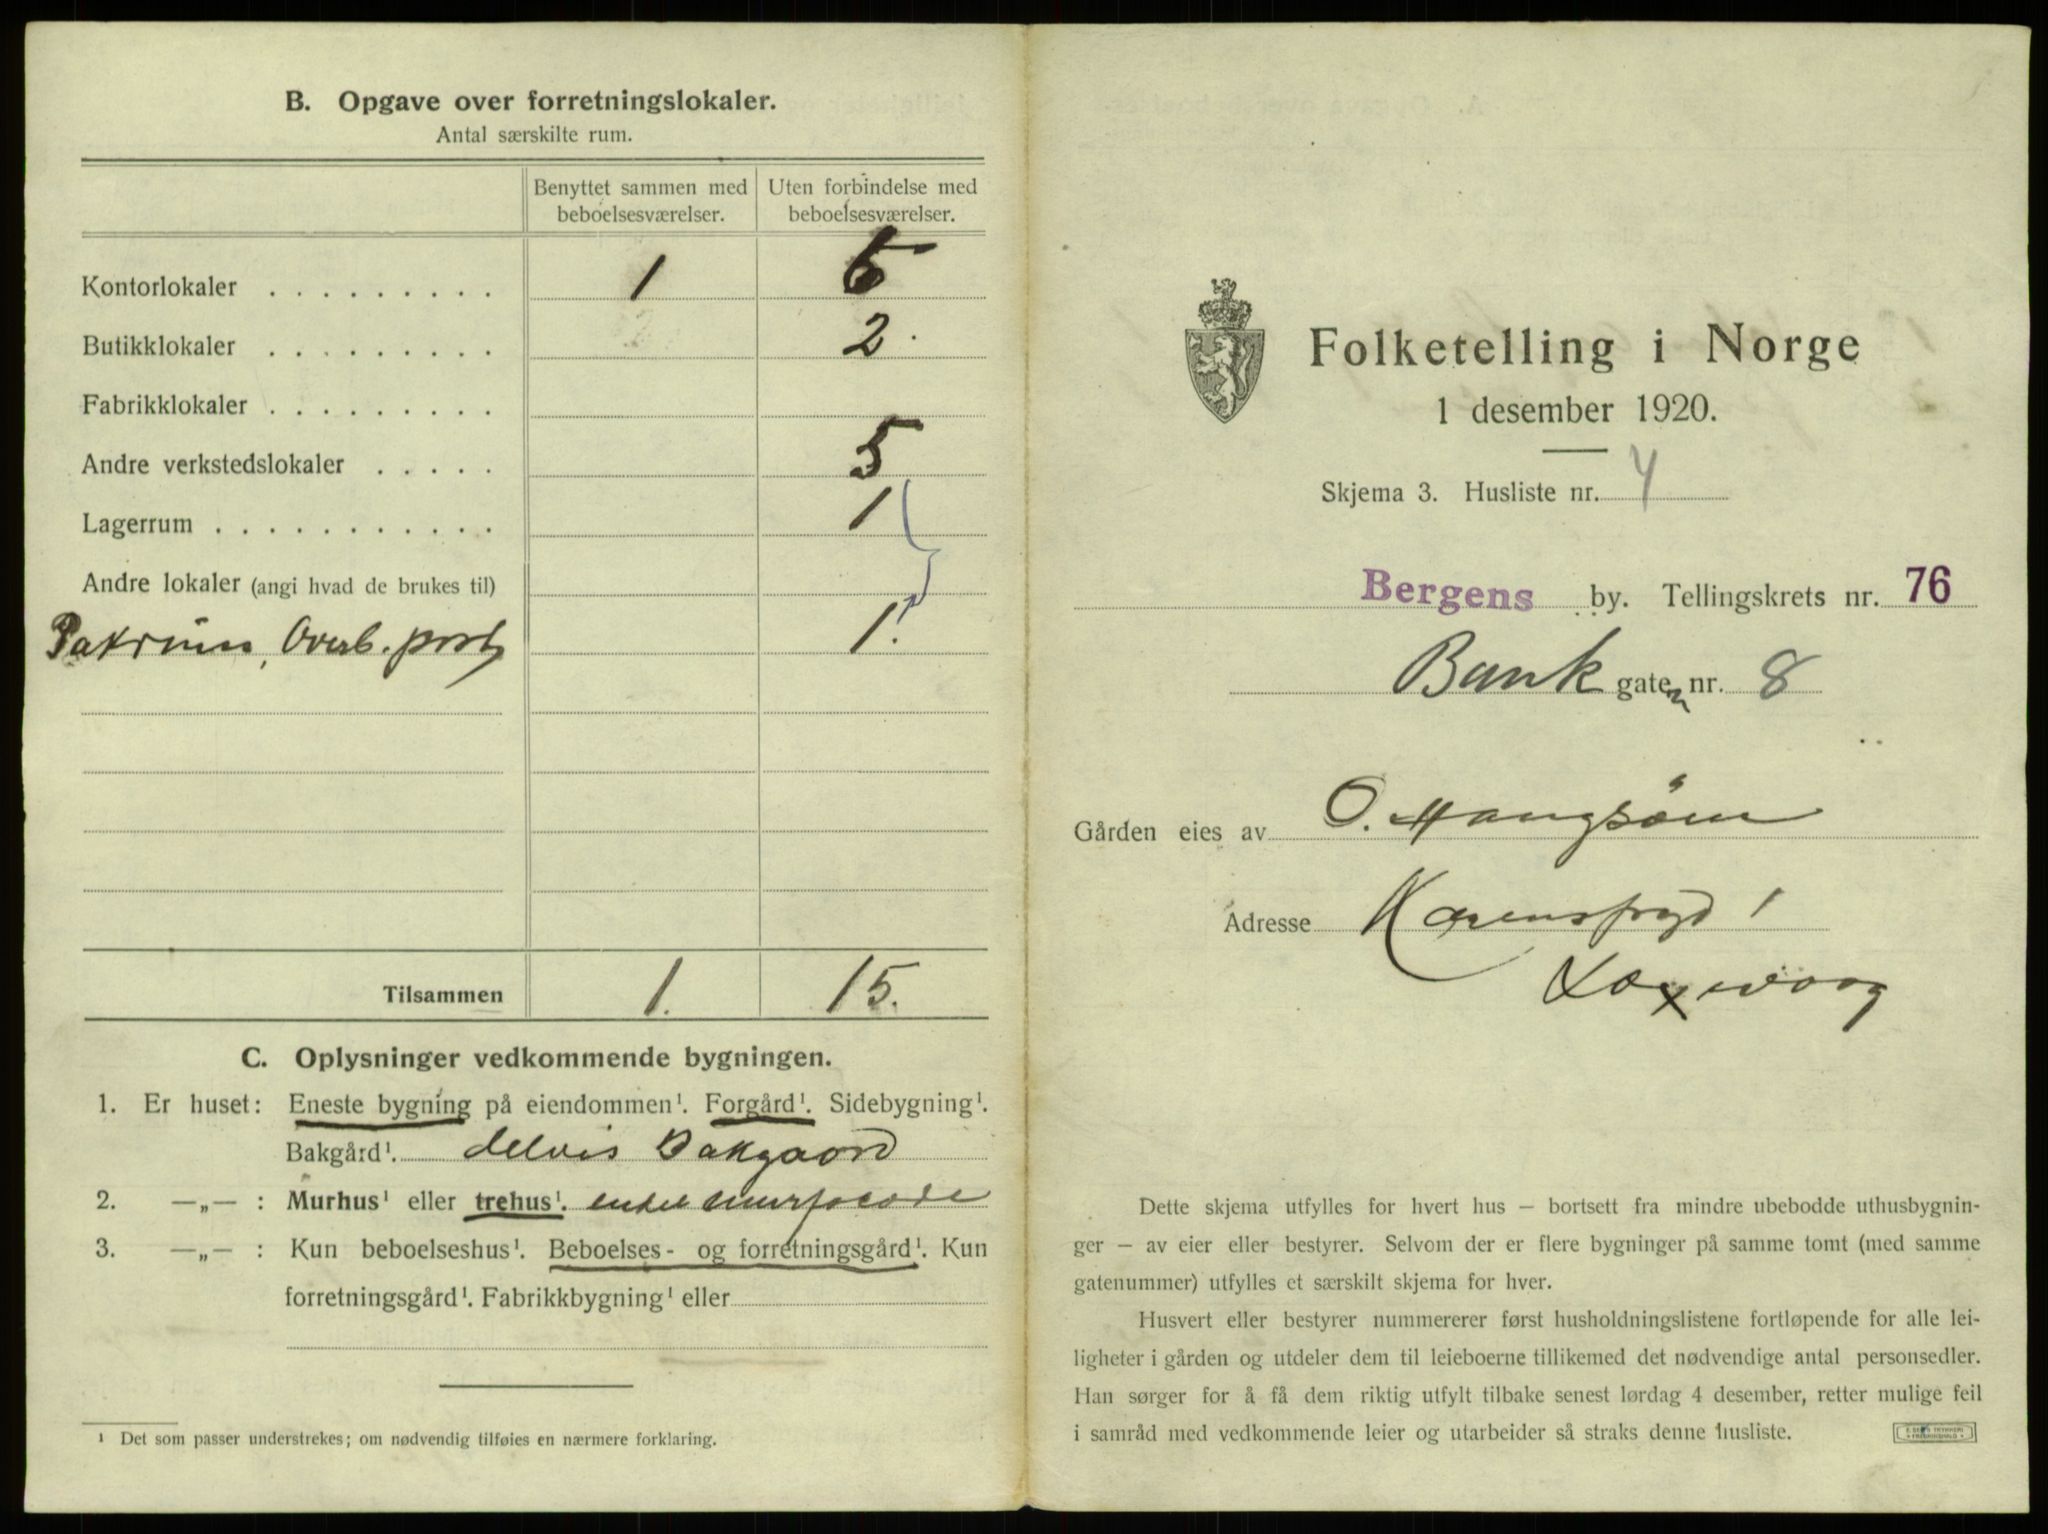 B. Opgave over forretningslokaler.
Antal særskilte rum.
Benyttet sammen med beboelsesværelser.
Uten forbindelse med beboelsesværelser.
Kontorlokaler . . . . . . . . . 1
Butikklokaler . . . . . . . . . 2.
Fabrikklokaler . . . . . . . . .
Andre verkstedslokaler . . . . . 5
Lagerrum . . . . . . . . . . . . 1
Andre lokaler (angi hvad de brukes til)
Pakrum, Overb. post 1.
Tilsammen 1. 15.
C. Oplysninger vedkommende bygningen.
1. Er huset: Eneste bygning på eiendommen¹. Forgård¹. Sidebygning¹.
Bakgård¹. delvis Bakgaard
2. —„— : Murhus¹ eller trehus¹. enkel murfacade
3. —„— : Kun beboelseshus¹. Beboelses- og forretningsgård¹. Kun
forretningsgård¹. Fabrikkbygning¹ eller
¹ Det som passer understrekes; om nødvendig tilføies en nærmere forklaring.
Folketelling i Norge
1 desember 1920.
Skjema 3. Husliste nr. 4
Bergens by. Tellingskrets nr. 76
Bank gaten nr. 8
Gården eies av O. Mangsöen
Adresse Karensfryd 1
Laxevaag
Dette skjema utfylles for hvert hus — bortsett fra mindre ubebodde uthusbygnin-
ger — av eier eller bestyrer. Selvom der er flere bygninger på samme tomt (med samme
gatenummer) utfylles et særskilt skjema for hver.
Husvert eller bestyrer nummererer først husholdningslistene fortløpende for alle lei-
ligheter i gården og utdeler dem til leieboerne tillikemed det nødvendige antal personsedler.
Han sørger for å få dem riktig utfylt tilbake senest lørdag 4 desember, retter mulige feil
i samråd med vedkommende leier og utarbeider så straks denne husliste.